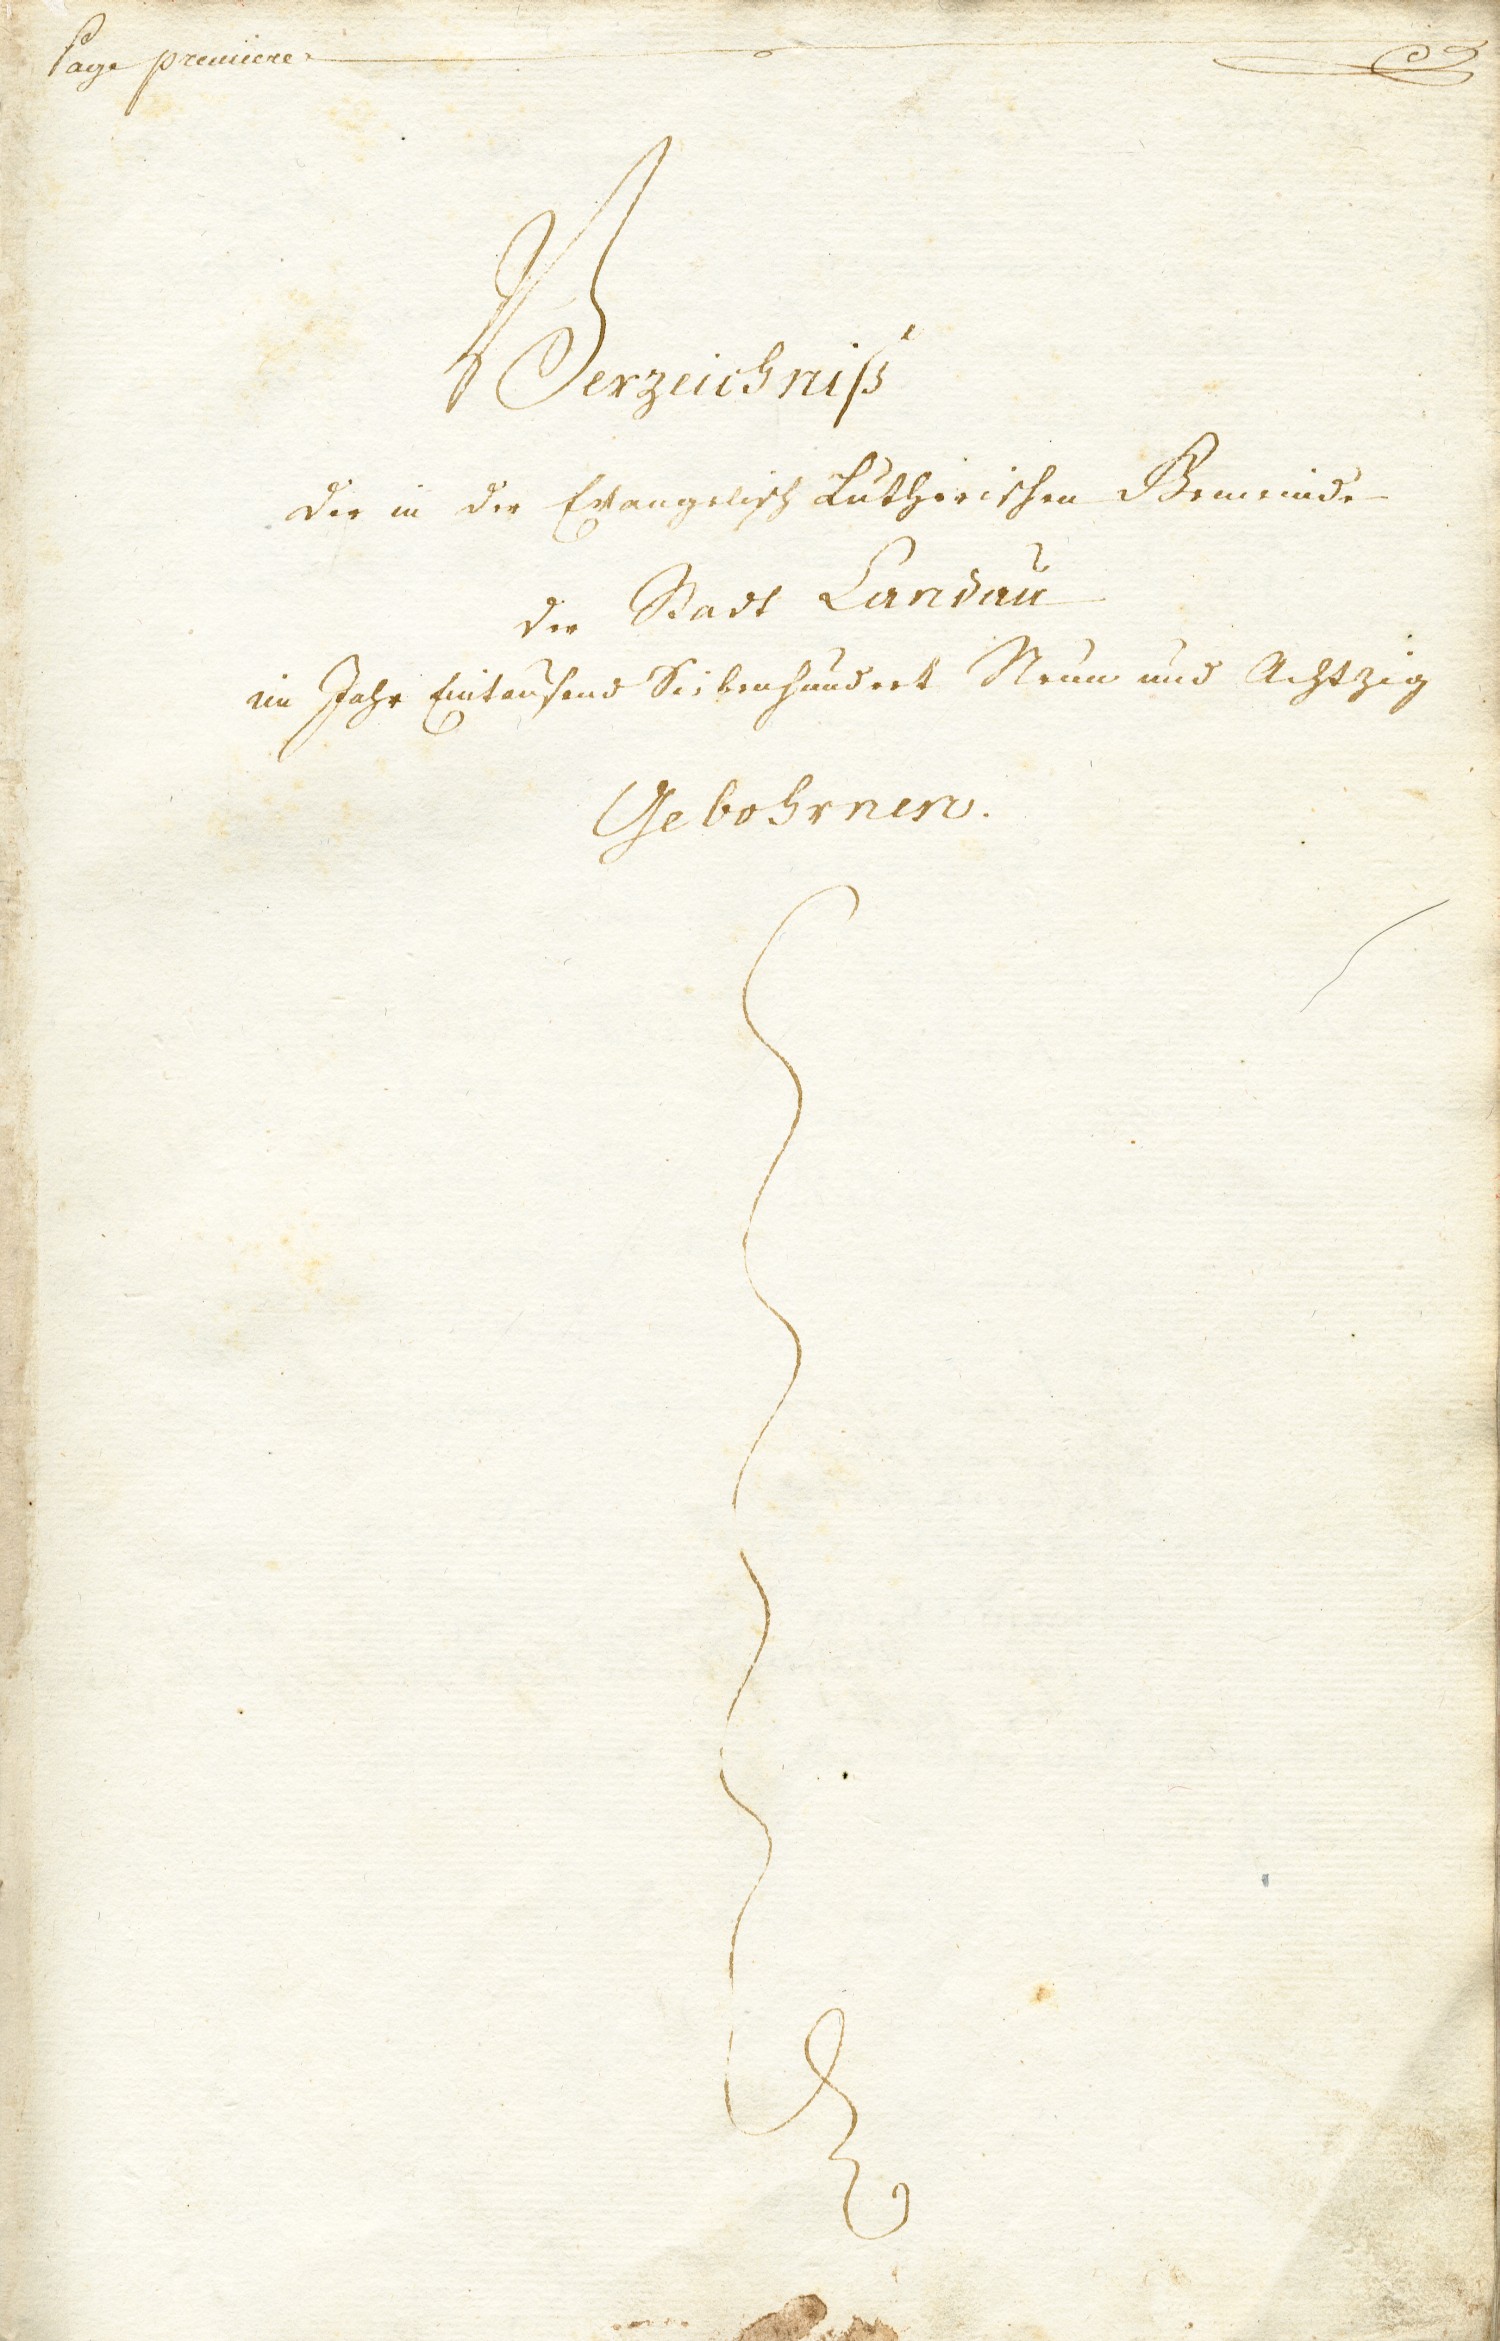 Page premiere
Verzeichniß
der in der Evangelisch Lutherischen Gemeinde
der Stadt Landau
im Jahr Eintausend Siebenhundert Neun und Achtzig
Gebohrnen.